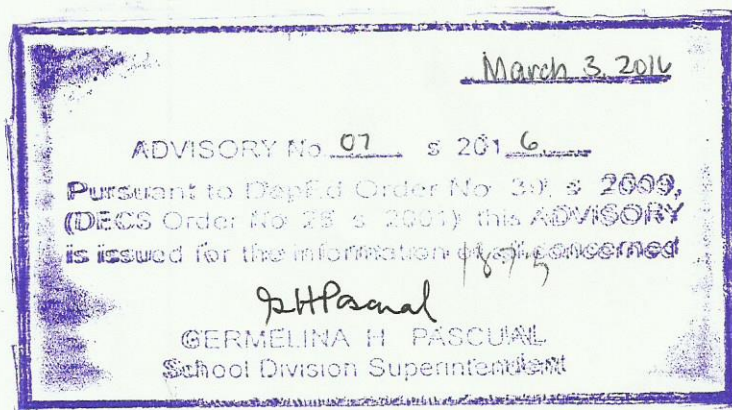 March 3, 2016
ADVISORY No. 07 s 2016
Pursuant to DepEd Order No 39, s 2009,
(DECS Order No 28 s 2001) this ADVISORY
is issued for the information of all concerned
GHPascual
GERMELINA H PASCUAL
School Division Superintendent